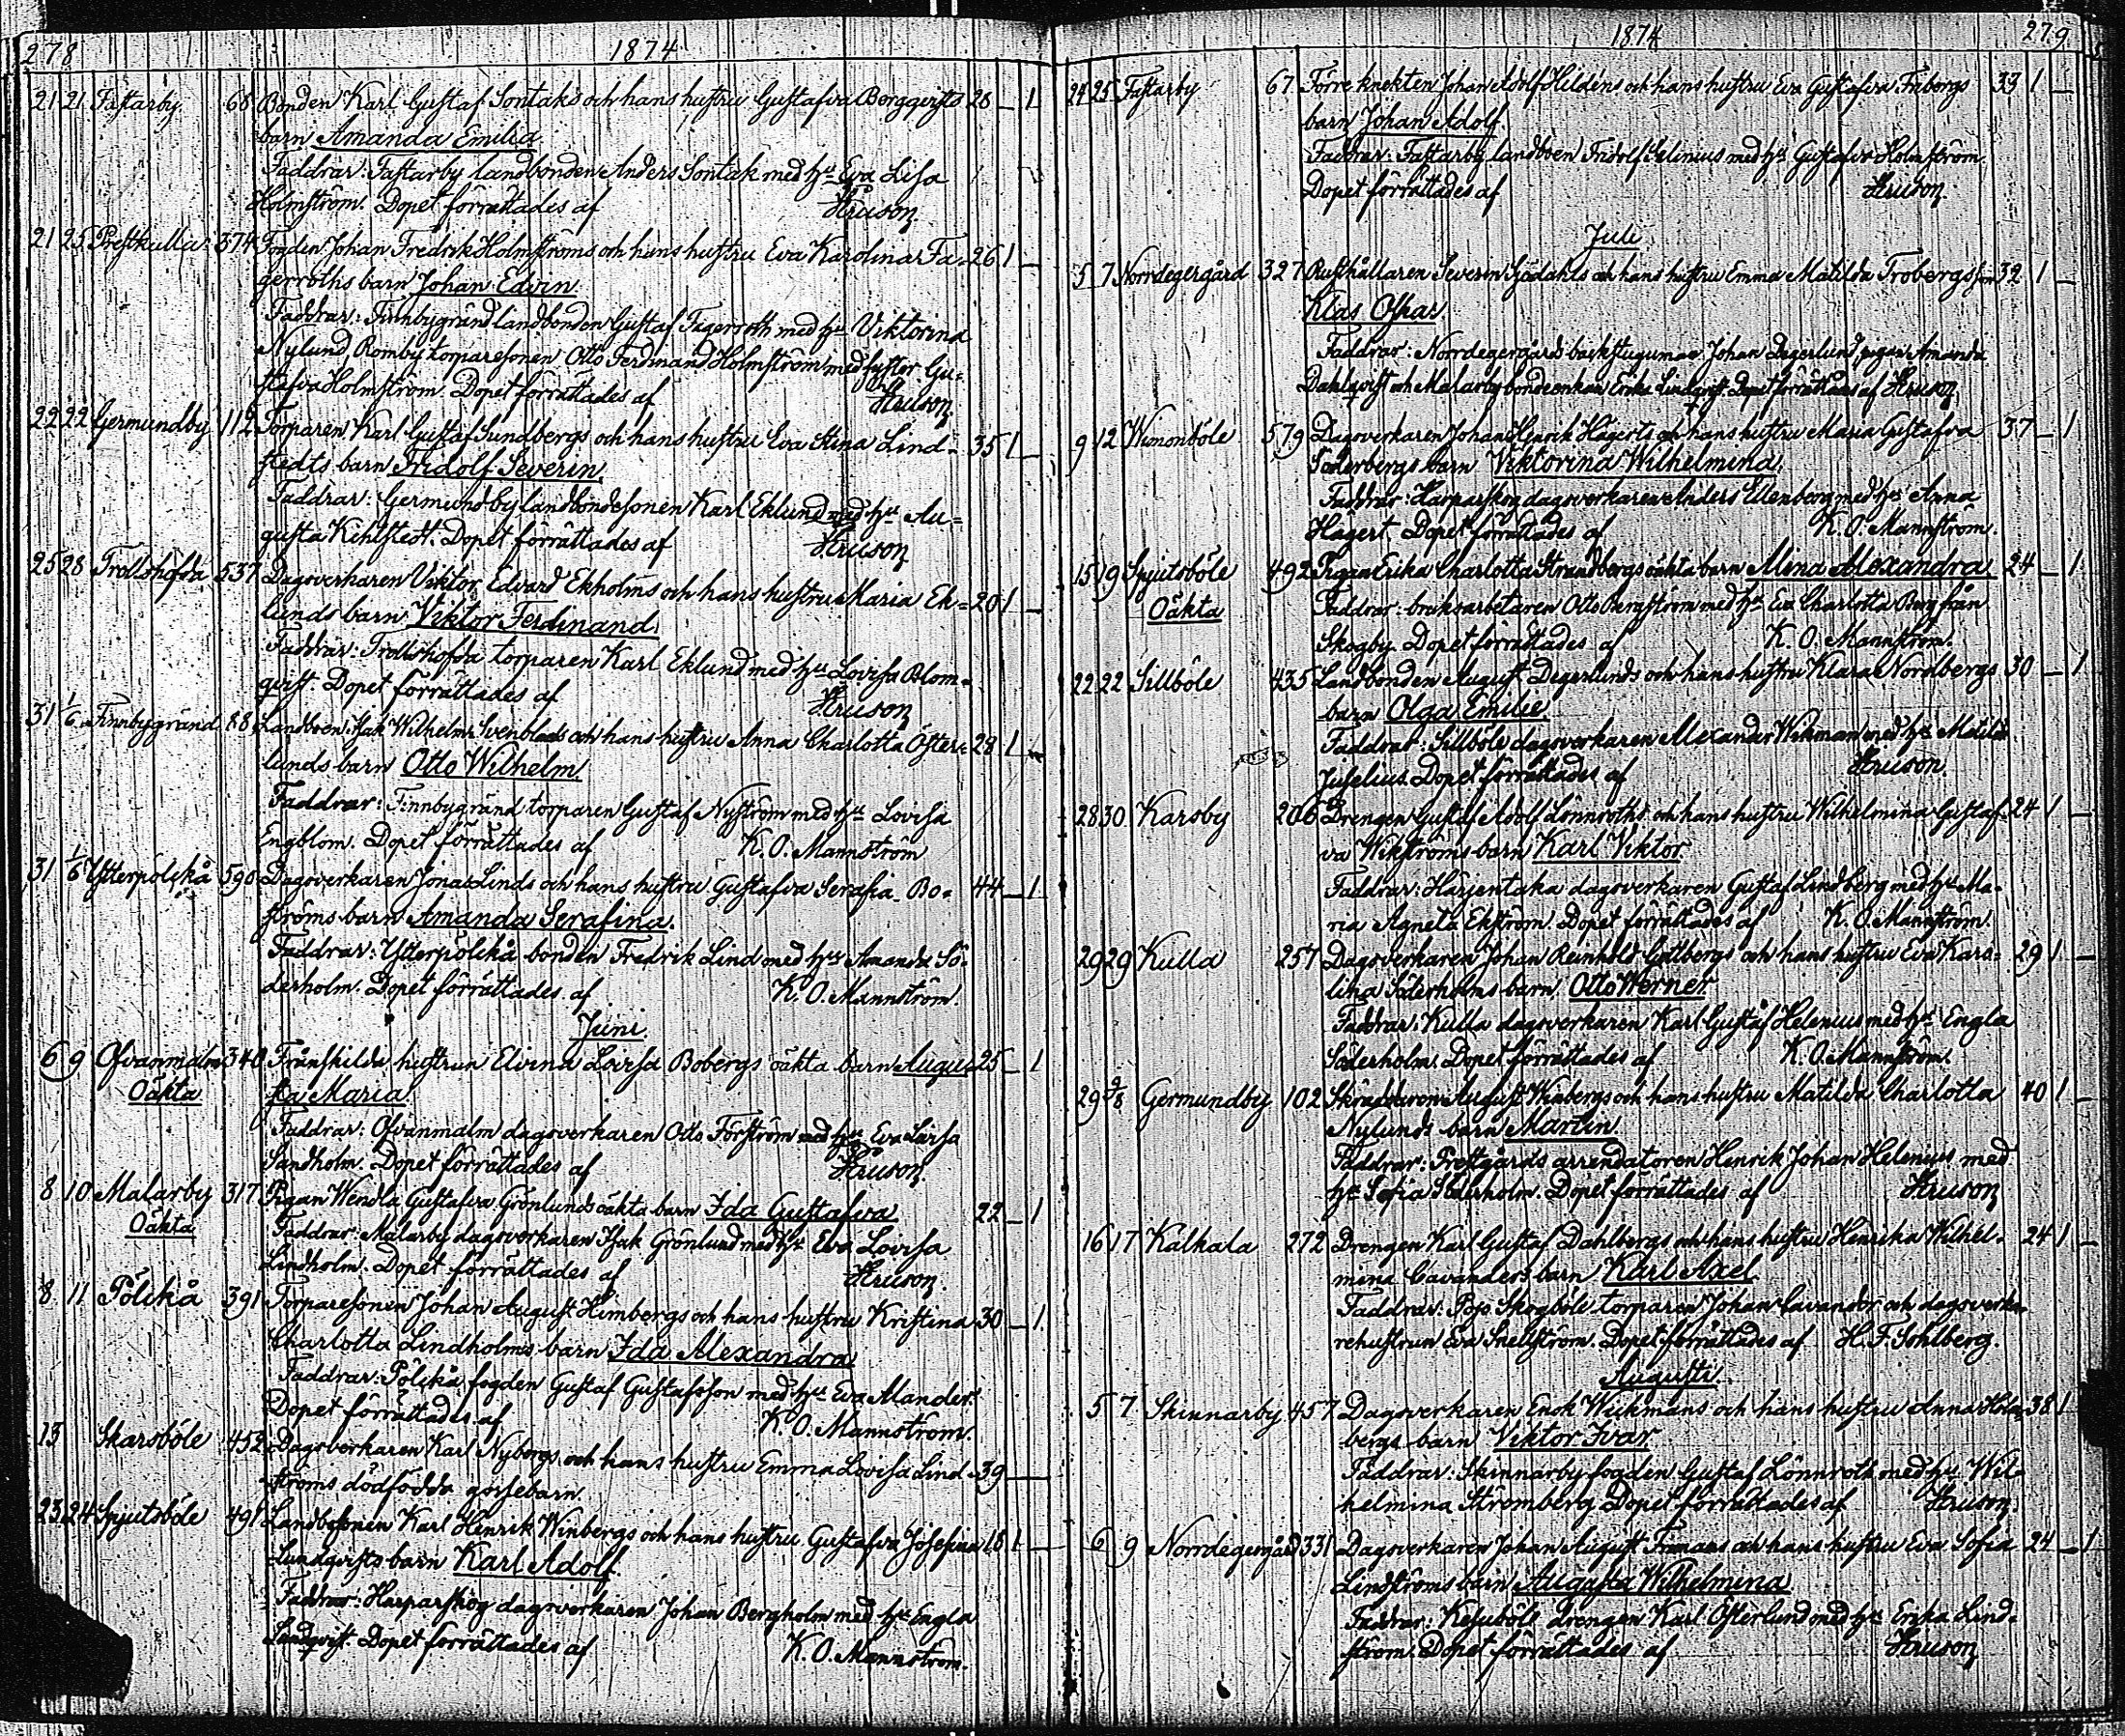 278 1874
21 21 Fastarby 68 Bonden Karl Gustaf Sontaks och hans hustru Gustafva Borgqvists 28 — 1
barn Amanda Emilia
Faddrar: Fastarby landbonden Anders Sontak med hu Eva Lisa
Holmström. Dopet förrättades af Hruson
21 25 Prestkulla 374 Johan Fredrik Holmströms och hans hustru Eva Karolina Fa- 26 1 —
gerroths barn Johan Edvin
Faddrar: Finnbygränd landbonden Gustaf Fagerroth med hu Viktorina
Nylund, Romby torparesonen Otto Ferdinand Holmström med syster Gu-
stafva Holmström. Dopet förrättades af Hruson
22 22 Germundby 112 Torparen Karl Gustaf Sundbergs och hans hustru Eva Stina Lind- 35 1 —
stedts barn Fridolf Severin.
Faddrar: Germundby landbondesonen Karl Eklund med hu Au-
gusta Kihlstedt. Dopet förrättades af Hruson
25 28 Trollshofda 537 Dagsverkaren Viktor Edvard Ekholms och hans hustru Maria Ek- 20 1 —
lunds barn Viktor Ferdinand.
Faddrar: Trollshofda torparen Karl Eklund med hu Lovisa Blom-
qvist. Dopet förrättades af Hruson
31 1/6 Finnbygränd 88 Landboen Isak Wilhelm Svenblads och hans hustru Anna Charlotta Öster- 28 1 —
lunds barn Otto Wilhelm.
Faddrar: Finnbygränd torparen Gustaf Nyström med hu Lovisa
Engblom. Dopet förrättades af K. O. Mannström
31 1/6 Ytterpölckå 590 Dagsverkaren Jonas Linds och hans hustru Gustafva Serafia Bo- 44 — 1
ströms barn Amanda Serafina.
Faddrar: Ytterpölckå bonden Fredrik Lind med hu Amanda Sö-
derholm. Dopet förrättades af K. O. Mannström.
Juni
6 9 Ofvanmalm 340 Frånskilda hustrun Elvina Lovisa Bobergs oäkta barn Augu- 25 — 1
Oäkta sta Maria
Faddrar: Ofvanmalm dagsverkaren Otto Forström med hu Eva Lovisa
Sandholm. Dopet förrättades af Hruson
8 10 Malarby 317 Pigan Wendla Gustafva Grönlunds oäkta barn Ida Gustafva 22 — 1
Oäkta Faddrar: Malarby dagsverkaren Isak Grönlund med hu Eva Lovisa
Lindholm. Dopet förrättades af Hruson
8 11 Pölckå 391 Torparesonen Johan August Himbergs och hans hustru Kristina 30 — 1
Charlotta Lindholms barn Ida Alexandra
Faddrar: Pölckå fogden Gustaf Gustafsson med hu Eva Mander.
Dopet förrättades af K. O. Mannström.
13 Skarsböle 452 Dagsverkaren Karl Nybergs och hans hustru Emma Lovisa Lind- 39 —
ströms dödfödda gossebarn
23 24 Spjutsböle 491 Landbosonen Karl Henrik Winbergs och hans hustru Gustafva Josefina 18 1 —
Lundqvists barn Karl Adolf.
Faddrar: Harparskog dagsverkaren Johan Bergholm med hu Engla
Lindqvist. Dopet förrättades af K. O. Mannström.
1874 279
24 25 Fastarby 67 Förre knekten Johan Adolf Hildéns och hans hustru Eva Gustafva Fribergs 33 1 —
barn Johan Adolf.
Faddrar: Fastarby landboen Fridolf Selenius med hu Gustafva Holmström.
Dopet förrättades af Hruson
Juli
5 7 Norrdegergård 327 Rusthållaren Severin Sjödahls och hans hustru Emma Matilda Trobergs son 32 1 —
Klas Oskar.
Faddrar: Norrdegergårds backstuguman Johan Degerlund, pigan Amanda
Dahlqvist och Malarby bondeenkan Erika Lindqvist. Dopet förrättades af Hruson
9 12 Wimonböle 579 Dagsverkaren Johan Henrik Hagerts och hans hustru Maria Gustafva 37 — 1
Söderbergs barn Viktorina Wilhelmina.
Faddrar: Harparskog dagsverkaren Anders Ellenberg med hu Anna
Hagert. Dopet förrättades af K. O. Mannström.
15 19 Spjutsböle 492 Pigan Erika Charlotta Strandbergs oäkta barn Mina Alexandra 24 — 1
Oäkta Faddrar: bruksarbetaren Otto Bergström med hu Eva Charlotta Berg från
Skogby. Dopet förrättades af K. O. Mannström.
22 22 Sillböle 435 Landbonden August Degerlunds och hans hustru Klara Nordbergs 30 — 1
barn Olga Emilie.
Faddrar: Sillböle dagsverkaren Alexander Wikman med hu Matilda
Juselius. Dopet förrättades af Hruson.
28 30 Karsby 206 Drengen Gustaf Adolf Lönnroths och hans hustru Wilhelmina Gustaf- 24 1 —
va Wikströms barn Karl Viktor.
Faddrar: Härjentaka dagsverkaren Gustaf Lindberg med hu Ma-
ria Agneta Ekström. Dopet förrättades af K. O. Mannström.
29 29 Kulla 257 Dagsverkaren Johan Reinhold Gottbergs och hans hustru Eva Karo- 29 1 —
lina Söderholms barn Otto Werner
Faddrar: Kulla dagsverkaren Karl Gustaf Helenius med hu Engla
Söderholm. Dopet förrättades af K. O. Mannström.
29 2/8 Germundby 102 Skräddaren August Winbergs och hans hustru Matilda Charlotta 40 1 —
Nylunds barn Martin
Faddrar: Prostgårds arrendatoren Henrik Johan Helenius med
hu Sofia Söderholm. Dopet förrättades af Hruson
16 17 Kalkala 272 Drengen Karl Gustaf Dahlbergs och hans hustru Henrika Wilhel- 24 1 —
mina Cavanders barn Karl Axel
Faddrar: Pojo Skogböle torparen Johan Cavander och dagsverka-
rehustrun Eva Snellström. Dopet förrättades af H. F. Sohlberg.
Augusti.
5 7 Skinnarby 457 Dagsverkaren Enok Wickmans och hans hustru Anna Holm- 38 1
bergs barn Viktor Ivar
Faddrar: Skinnarby fogden Gustaf Lönnroth med hu Wil-
helmina Strömberg. Dopet förrättades af Hruson
6 9 Norrdegergård 331 Dagsverkaren Johan August Fromans och hans hustru Eva Sofia 24 — 1
Lindströms barn Augusta Wilhelmina
Faddrar: Kesuböle drengen Karl Österlund med hu Erika Lind-
ström. Dopet förrättades af Hruson